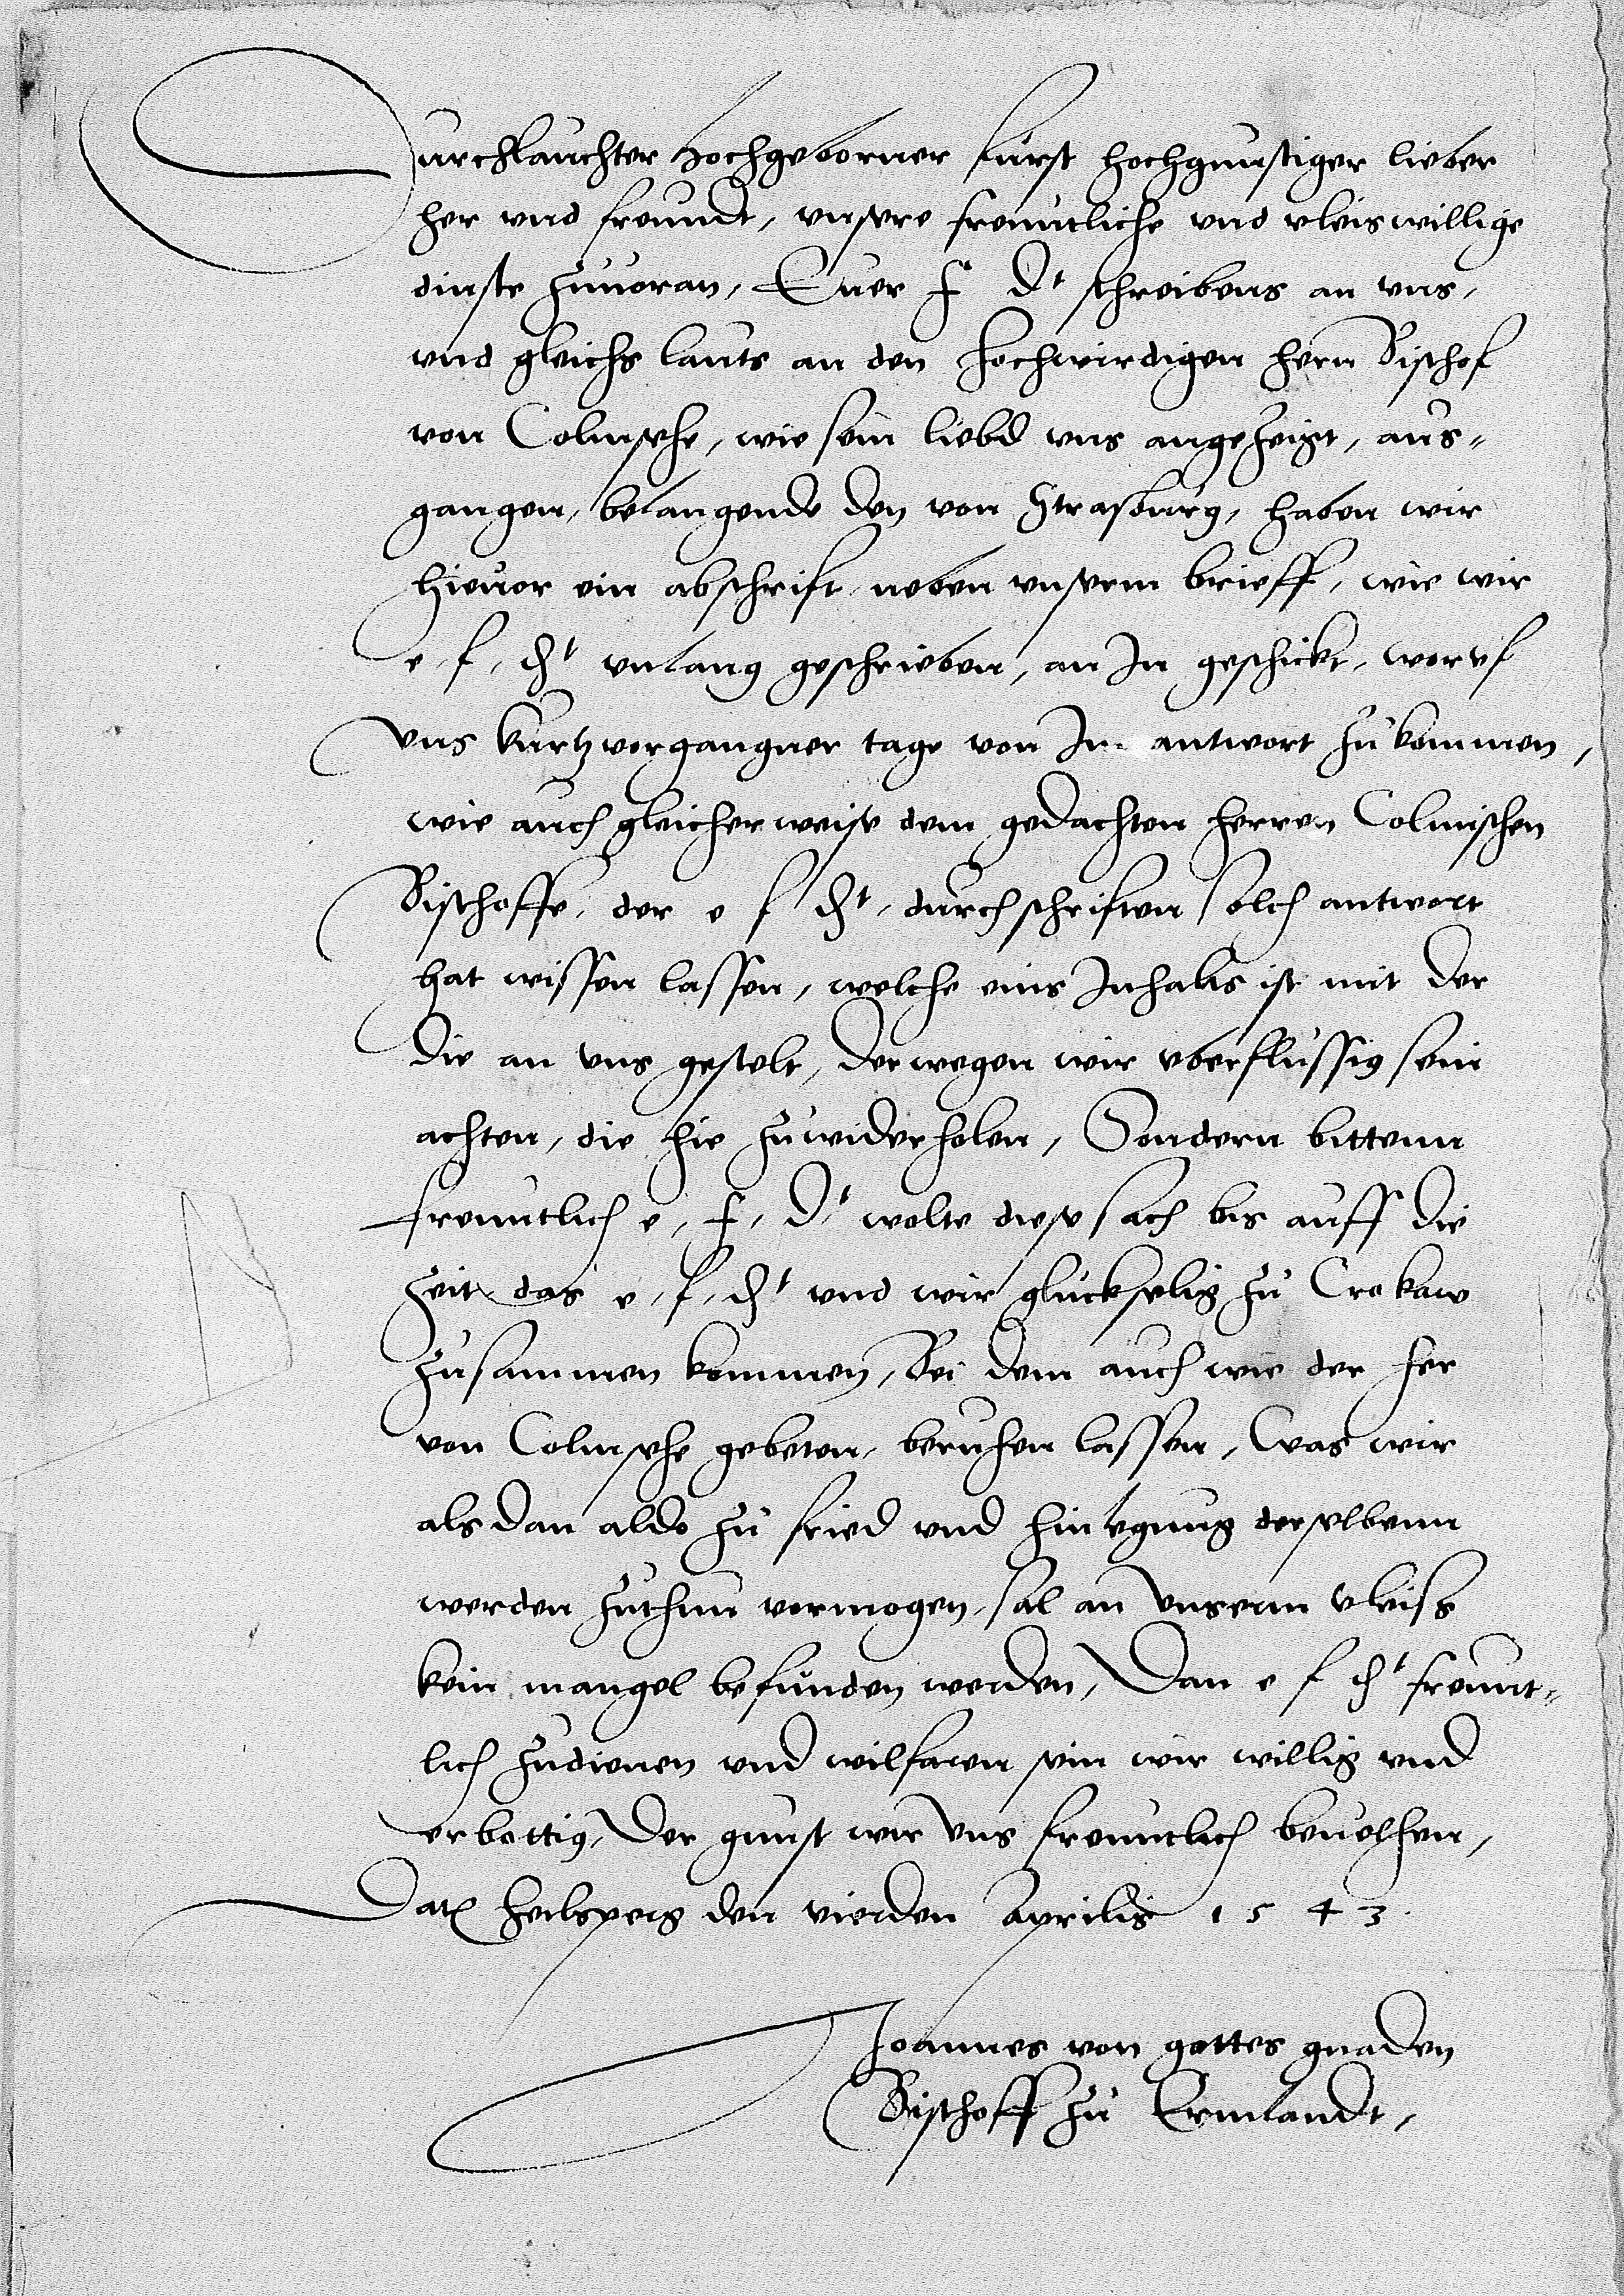 Durchlauchter hochgeborner furst hochgunstiger lieber
her vnd freundt, vnsere freuntliche vnd vleis willige
dinste zuuoran, Euer f dt schreibens an vns,
vnd gleichs lauts an den hochwirdigen hern Bischof
von Colmsehe, wie sein liebd vns angezeigt, aus-
gangen, belangende den von Strasburg, haben wir
hieuor ein abschrift neben vnserm brieff, wie wir
e, f, dt vnlang geschrieben, an In geschickt, woruf
Vns kurtz vorgangner tage von Im antwort zu kommen,
wie auch gleicher weise dem gedachten herren Colmischen
Bischoffe, der e f dt, durch schriften solch antwort
hat wissen lassen, welche eins Inhalts ist mit der
die an vns gestelt, derwegen wir vberflussig sein
achten, die hie zuwiderholen, Sondern bittenn
freuntlich e, f, dt wolte diese sach bis auff die
zeit das e, f, dt vnd wir gluckselig zu Crokaw
zusammen kommen, Bei dem auch wie der her
von Colmsehe gebeten, beruhen lassen, Was wir
als dan aldo zu fried vnd hinlegung derselbenn
werden zuthun vermogen, sal an vnserm vleiss
kein mangel befunden werden, Dan e f dt freunt-
lich zudienen vnd wilfaren sein wir willig vnd
erbottig, Der gunst wir vns freuntlich beuelhen,
Dat heilsperg den vierden Aprilis 1543.
Joannes von gottes gnaden
Bischoff zu Ermlandt,